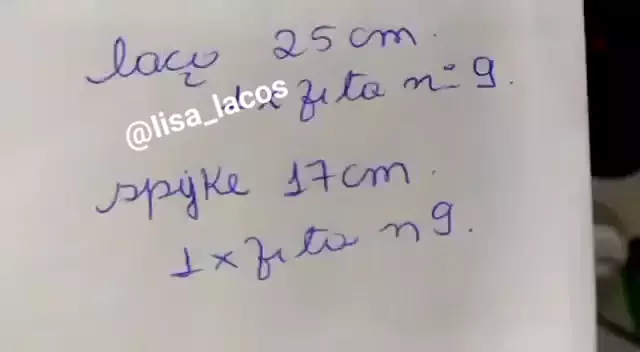 laço 25 cm.
1x fita nº 9.
@lisa_lacos
spyke 17 cm.
1 x fita n 9.